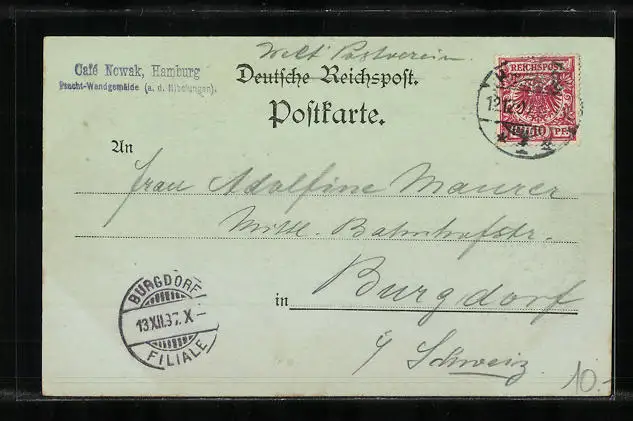 Welt Postverein.
Café Nowak, Hamburg
Pracht-Wandgemälde (a. d. Nibelungen).
Deutsche Reichspost.
Postkarte.
REICHSPOST
10 PF
An
Frau Adolfine Maurer
Mittl. Bahnhofstr.
in Burgdorf
i/ Schweiz.
BURGDORF
13.XII.97.X-
FILIALE
10.-